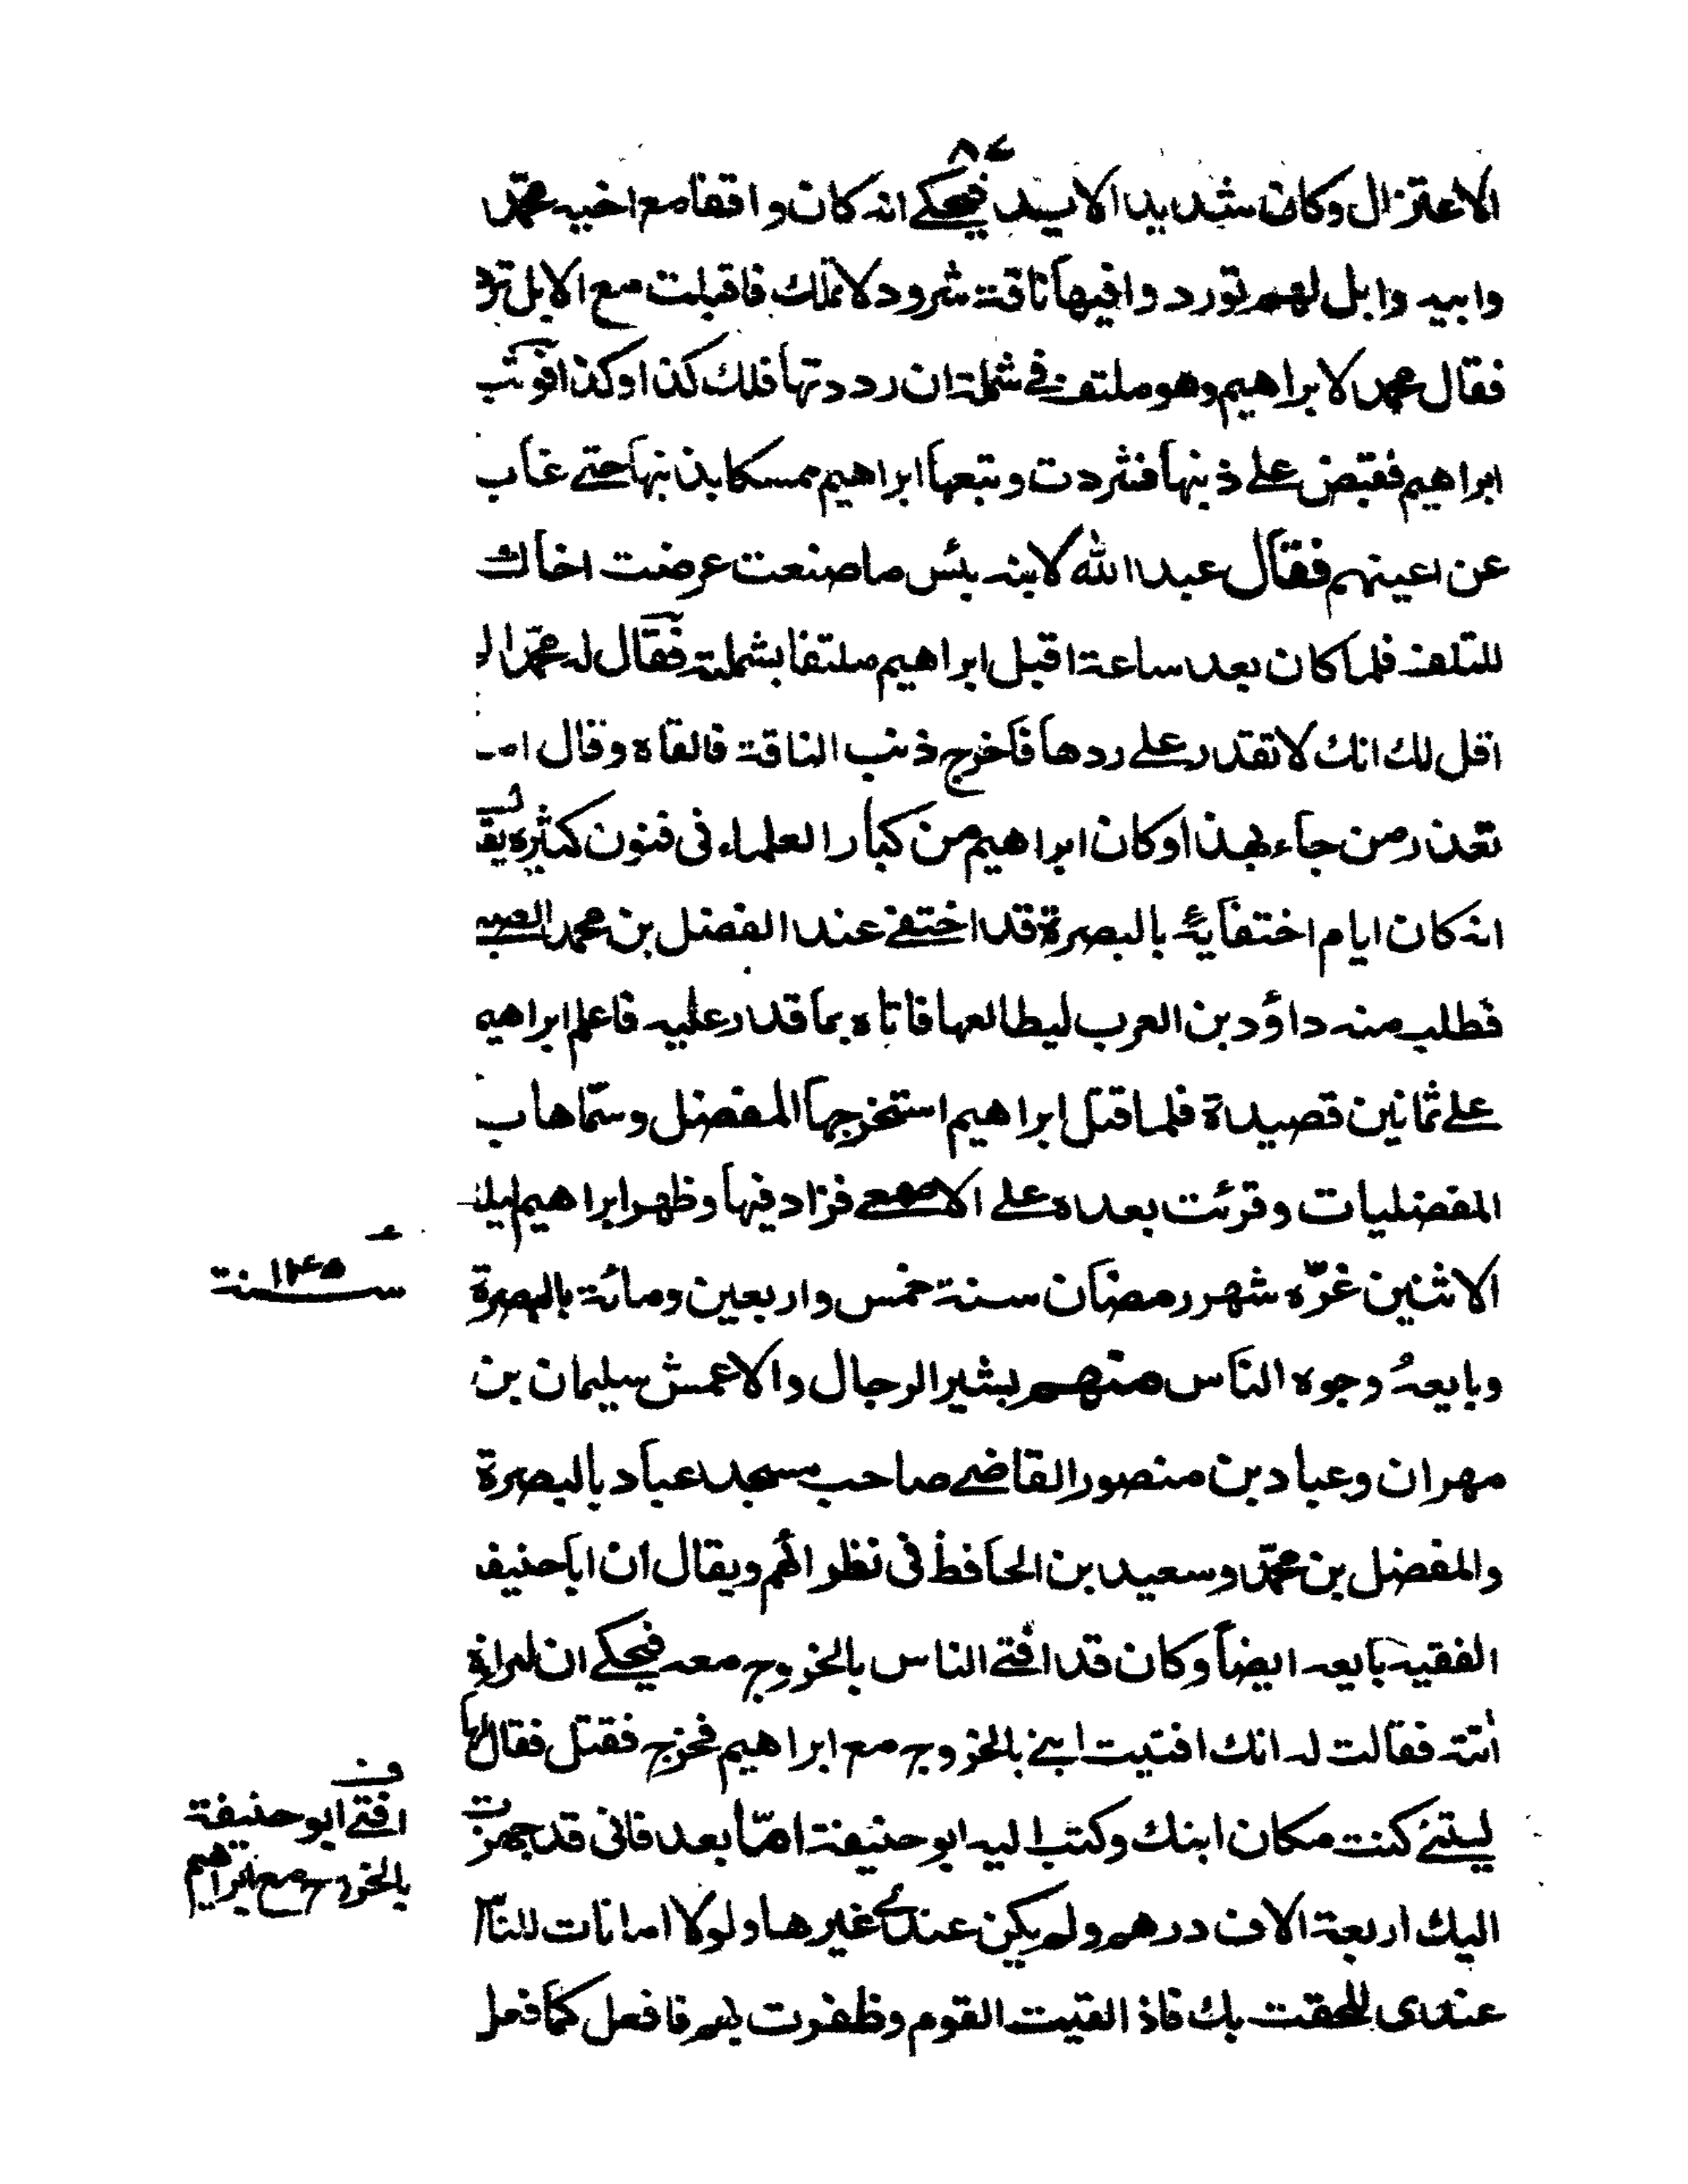 ٨٤
الاعتزال وكان شديد الايد فيحكى انه كان واقفا مع اخيه محمد
وابيه وابل لهم تورد وافيها ناقة شرود لا تملك فاقبلت مع الابل ترد
فقال محمد لابراهيم وهو ملتف فى شملة ان رددتها فلك كذا وكذا فوثب
ابراهيم فقبض على ذنبها فشردت وتبعها ابراهيم ممسكا بذنبها حتى غاب
عن اعينهم فقال عبد الله لابنه بئس ما صنعت عرضت اخاك
للتلف فلما كان بعد ساعة اقبل ابراهيم ملتفا بشملته فقال له محمد الم
اقل لك انك لا تقدر على ردها فاخرج ذنب الناقة فالقاه وقال اما
تعذر من جاء بهذا وكان ابراهيم من كبار العلماء فى فنون كثيره يقال
انه كان ايام اختفائه بالبصرة قد اختفى عند الفضل بن محمد الضبى
فطلب منه داؤد بن العرب ليطالعها فاتاه بما قدر عليه فاعلم ابراهيم
على ثمانين قصيدة فلما قتل ابراهيم استخرجها المفضل وسماها ب
المفضليات وقرئت بعده على الاصمعى فزاد فيها وظهر ابراهيم ليلة
الاثنين غرّه شهر رمضان سنة خمس واربعين ومائة بالبصرة
سنة ١٤٥
وبايعهُ وجوه الناس منهم بشير الرجال والاعمش سليمان بن
مهران وعباد بن منصور القاضى صاحب مسجد عباد بالبصرة
والمفضل بن محمد وسعيد بن الحافظ فى نظرائهم ويقال ان ابا حنيفه
الفقيه بايعه ايضاً وكان قد افتى الناس بالخروج معه فيحكى ان امراة
اتته فقالت له انك افتيت ابنى بالخروج مع ابراهيم فخرج فقتل فقال لها
ليتنى كنت مكان ابنك وكتب اليه ابو حنيفة امّا بعد فانى قد جهزت
ف
افتى ابو حنيفة
بالخروج مع ابراهيم
اليك اربعة الاف درهم ولم يكن عندى غيرها ولولا امانات للناس
عندى للحقت بك فاذ القيت القوم وظفرت بهم فافعل كما فعل